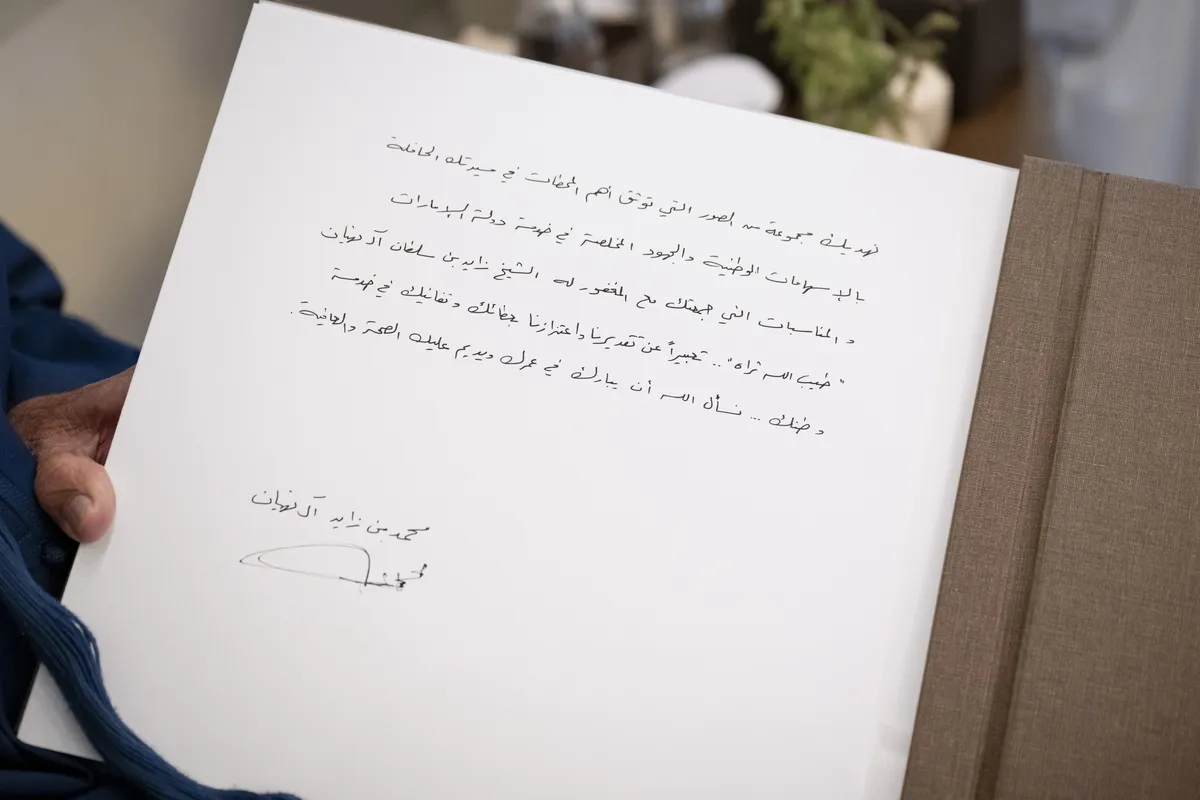 نهديك مجموعة من الصور التي توثق أهم المحطات في مسيرتك الحافلة
بالإسهامات الوطنية والجهود المخلصة في خدمة دولة الإمارات
والمناسبات التي جمعتك مع المغفور له الشيخ زايد بن سلطان آل نهيان
"طيب الله ثراه" .. تعبيراً عن تقديرنا واعتزازنا بعطائك وتفانيك في خدمة
وطنك ... نسأل الله أن يبارك في عمرك ويديم عليك الصحة والعافية .
محمد بن زايد آل نهيان